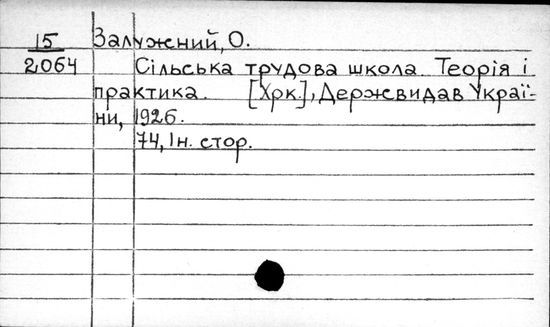 15 Залужний, О.
2064 Сільська трудова школа. Теорія і
практика. [Хрк.], Держвидав Украї-
ни, 1926.
74, Iн. стор.